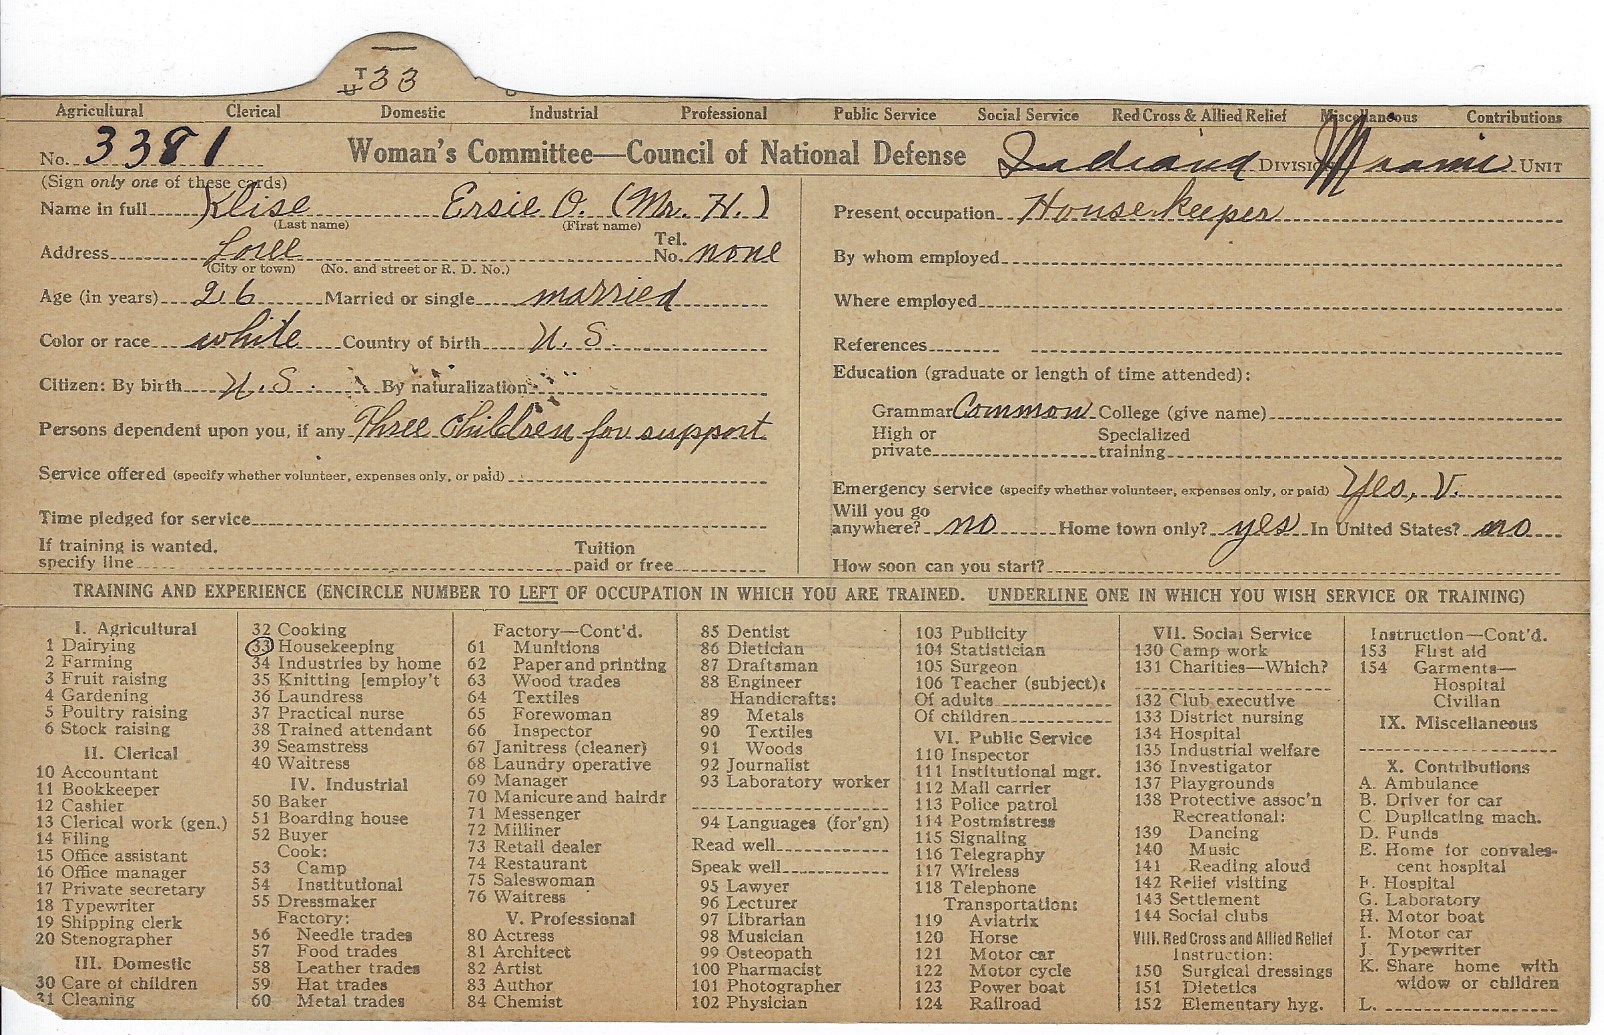 T
U 33
Agricultural Clerical Domestic Industrial Professional Public Service Social Service Red Cross & Allied Relief Miscellaneous Contributions
No. 3381 Woman's Committee—Council of National Defense Indiana DIVISION Miami UNIT
(Sign only one of these cards)
Name in full Klise Ersie O. (Mr. H.)
(Last name) (First name)
Address Loree Tel. No. none
(City or town) (No. and street or R. D. No.)
Age (in years) 26 Married or single married
Color or race white Country of birth U. S.
Citizen: By birth U. S. By naturalization
Persons dependent upon you, if any Three children for support
Service offered (specify whether volunteer, expenses only, or paid)
Time pledged for service
If training is wanted, specify line Tuition paid or free
Present occupation Housekeeper
By whom employed
Where employed
References
Education (graduate or length of time attended):
Grammar Common College (give name)
High or private Specialized training
Emergency service (specify whether volunteer, expenses only, or paid) Yes, V.
Will you go anywhere? no Home town only? yes In United States? no
How soon can you start?
TRAINING AND EXPERIENCE (ENCIRCLE NUMBER TO LEFT OF OCCUPATION IN WHICH YOU ARE TRAINED. UNDERLINE ONE IN WHICH YOU WISH SERVICE OR TRAINING)
I. Agricultural
1 Dairying
2 Farming
3 Fruit raising
4 Gardening
5 Poultry raising
6 Stock raising
II. Clerical
10 Accountant
11 Bookkeeper
12 Cashier
13 Clerical work (gen.)
14 Filing
15 Office assistant
16 Office manager
17 Private secretary
18 Typewriter
19 Shipping clerk
20 Stenographer
III. Domestic
30 Care of children
31 Cleaning
32 Cooking
33 Housekeeping
34 Industries by home
35 Knitting [employ't
36 Laundress
37 Practical nurse
38 Trained attendant
39 Seamstress
40 Waitress
IV. Industrial
50 Baker
51 Boarding house
52 Buyer
Cook:
53 Camp
54 Institutional
55 Dressmaker
Factory:
56 Needle trades
57 Food trades
58 Leather trades
59 Hat trades
60 Metal trades
Factory—Cont'd.
61 Munitions
62 Paper and printing
63 Wood trades
64 Textiles
65 Forewoman
66 Inspector
67 Janitress (cleaner)
68 Laundry operative
69 Manager
70 Manicure and hairdr
71 Messenger
72 Milliner
73 Retail dealer
74 Restaurant
75 Saleswoman
76 Waitress
V. Professional
80 Actress
81 Architect
82 Artist
83 Author
84 Chemist
85 Dentist
86 Dietician
87 Draftsman
88 Engineer
Handicrafts:
89 Metals
90 Textiles
91 Woods
92 Journalist
93 Laboratory worker
94 Languages (for'gn)
Read well
Speak well
95 Lawyer
96 Lecturer
97 Librarian
98 Musician
99 Osteopath
100 Pharmacist
101 Photographer
102 Physician
103 Publicity
104 Statistician
105 Surgeon
106 Teacher (subject):
Of adults
Of children
VI. Public Service
110 Inspector
111 Institutional mgr.
112 Mail carrier
113 Police patrol
114 Postmistress
115 Signaling
116 Telegraphy
117 Wireless
118 Telephone
Transportation:
119 Aviatrix
120 Horse
121 Motor car
122 Motor cycle
123 Power boat
124 Railroad
VII. Social Service
130 Camp work
131 Charities—Which?
132 Club executive
133 District nursing
134 Hospital
135 Industrial welfare
136 Investigator
137 Playgrounds
138 Protective assoc'n
Recreational:
139 Dancing
140 Music
141 Reading aloud
142 Relief visiting
143 Settlement
144 Social clubs
VIII. Red Cross and Allied Relief
Instruction:
150 Surgical dressings
151 Dietetics
152 Elementary hyg.
Instruction—Cont'd.
153 First aid
154 Garments—
Hospital
Civilian
IX. Miscellaneous
X. Contributions
A. Ambulance
B. Driver for car
C. Duplicating mach.
D. Funds
E. Home for convales-
cent hospital
F. Hospital
G. Laboratory
H. Motor boat
I. Motor car
J. Typewriter
K. Share home with
widow or children
L.